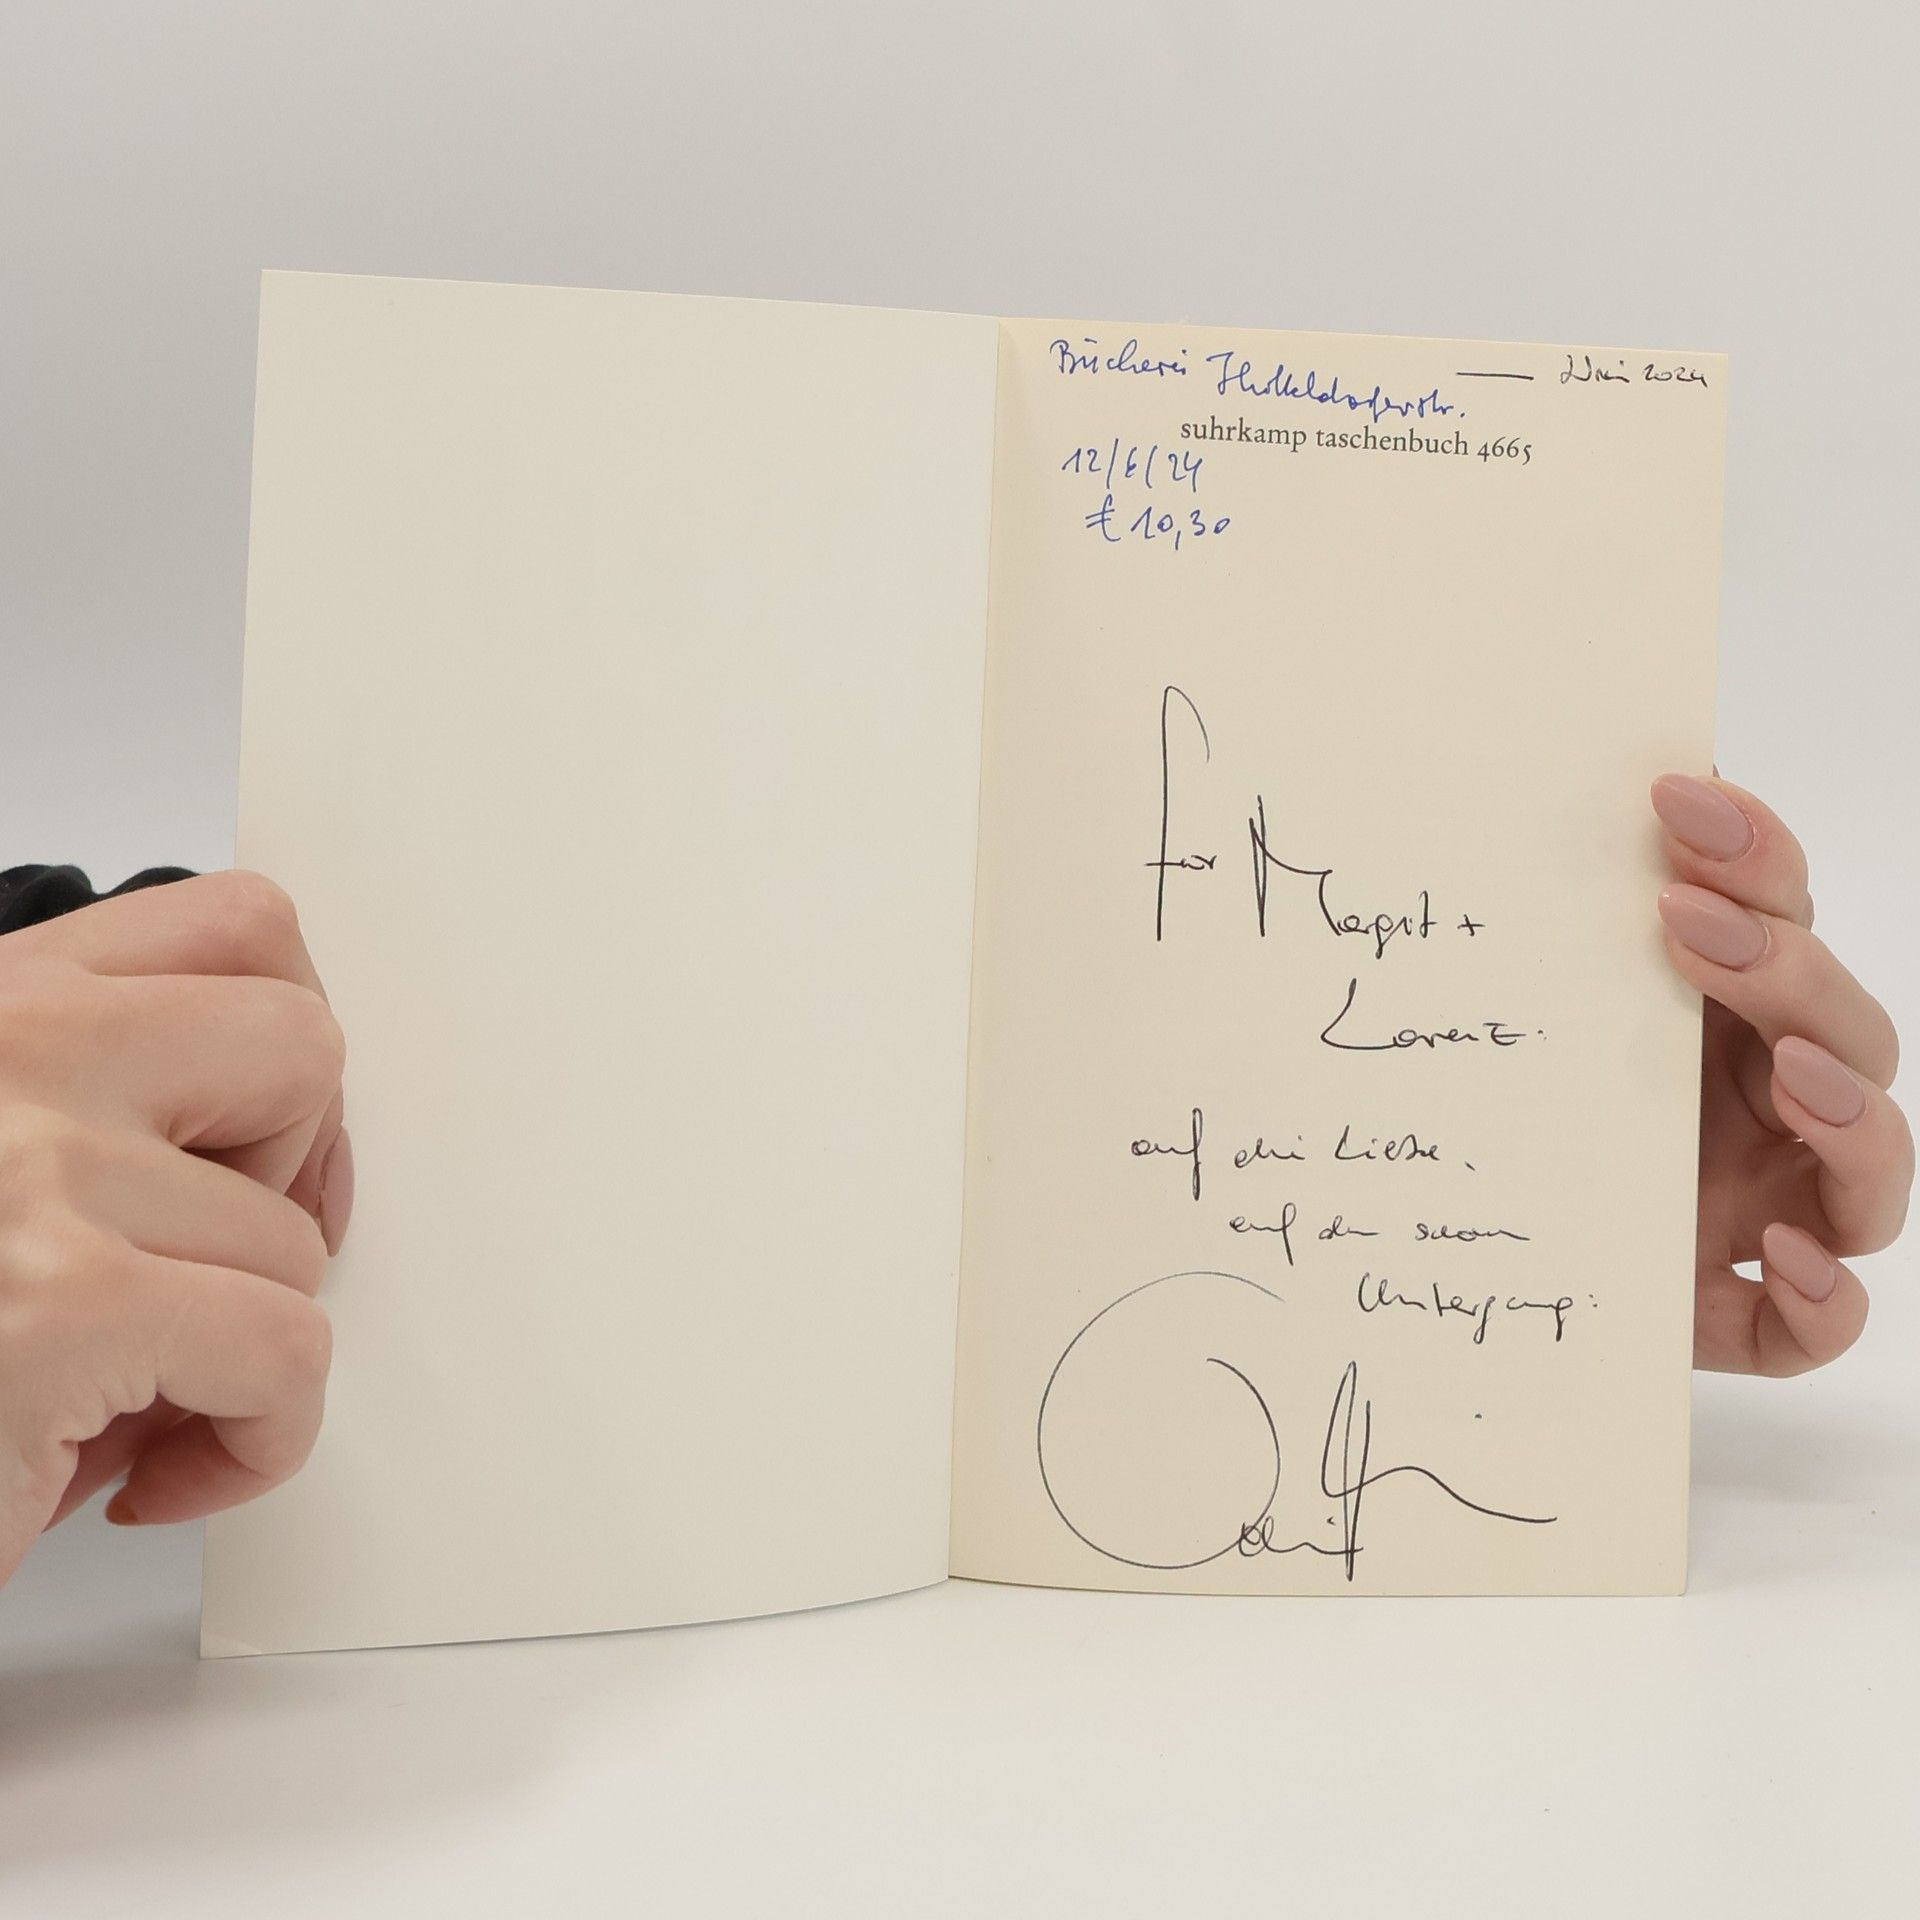 Bücherei
2024
suhrkamp taschenbuch 4665
12/6/24
€ 10,30
für Margit +
Lorenz:
auf die Liebe,
auf den
Untergang: